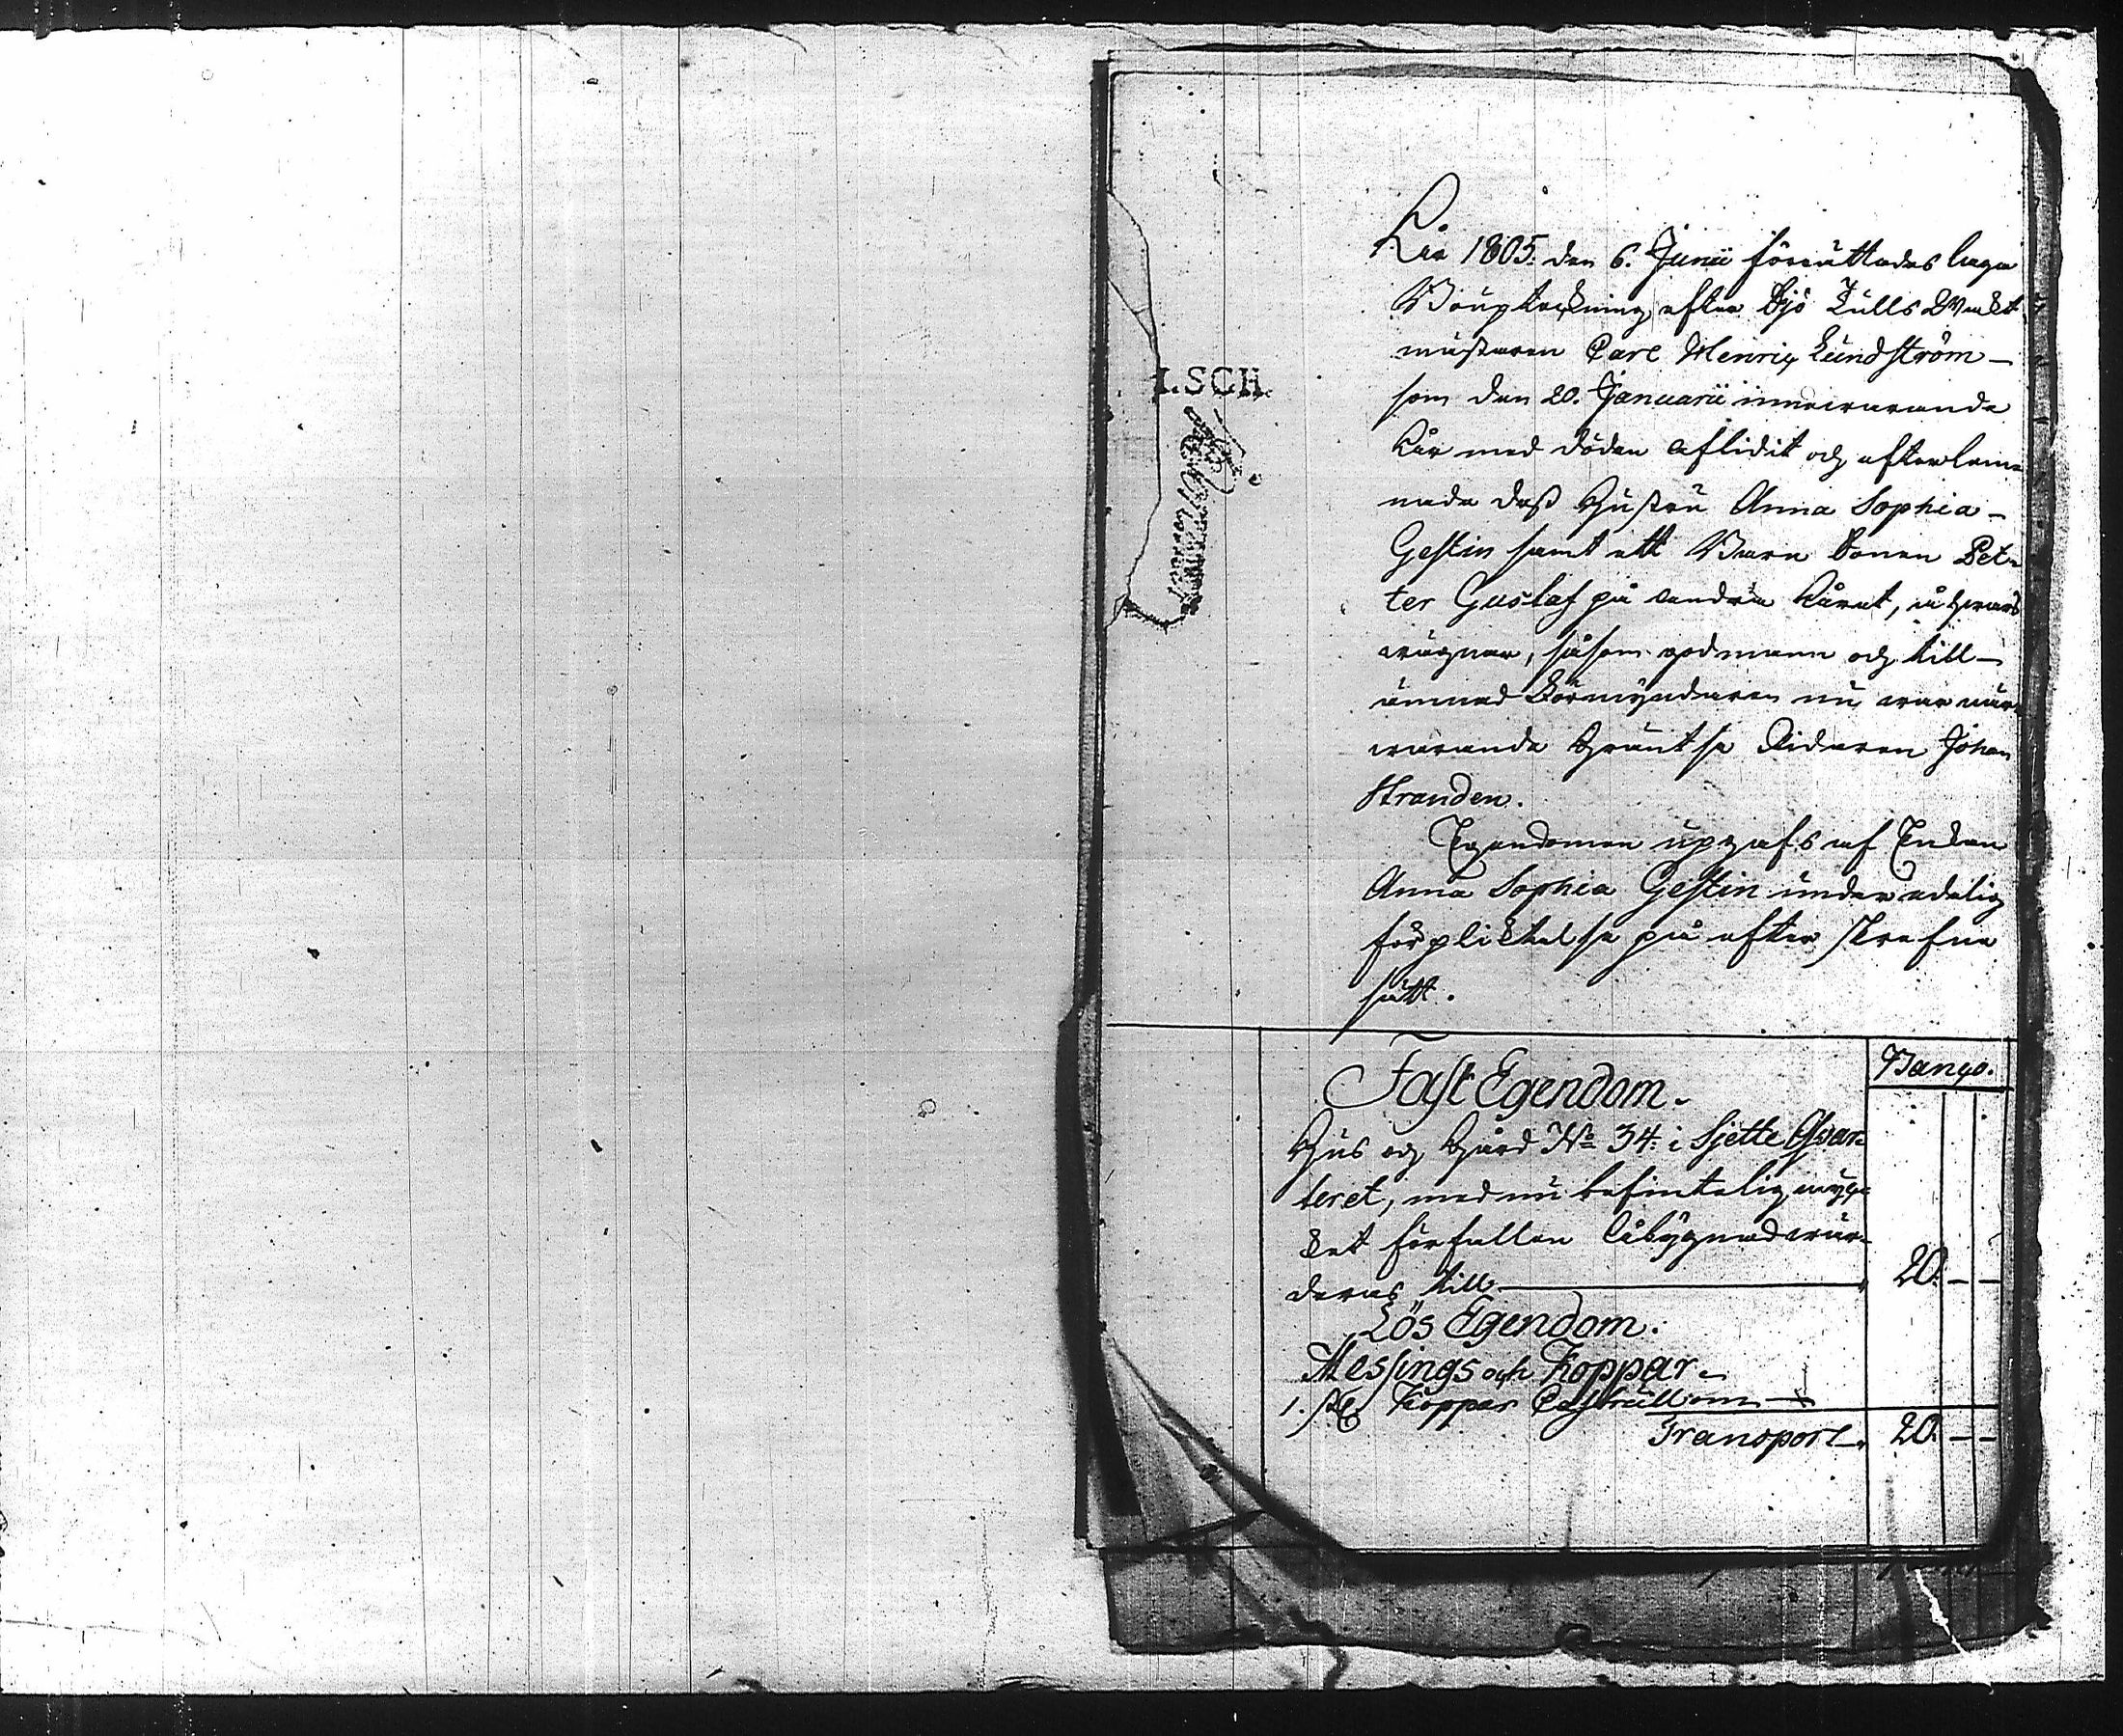 I.SCH.
År 1805. den 6. Junii förrättades laga
Bouptekning efter Sjö Tulls Vakt
mästaren Carl Henric Lundström
som den 20. Januarii innevarande
År med döden aflidit och efterlem¬
nade dess Hustru Anna Sophia
Gestin samt ett Barn Sonen Pet¬
ter Gustaf på andra Året, å hvars
vägnar, såsom godman och till¬
ämnad Förmyndaren nu var när¬
varande Gräntse Ridaren Johan
Stranden.
Egendomen upgafs af Enkan
Anna Sophia Gestin under edelig
förpliktelse på efter skrefne
sätt.
Banco.
Fast Egendom.
Hus och Gård No 34. i Sjette Qvar¬
teret, med nu befintelig myc¬
ket förfallen Åbyggnad vär¬
deras till 20. — —
Lös Egendom.
Messings och Koppar
1. st. Koppar Castrull om
Transport. 20. — —